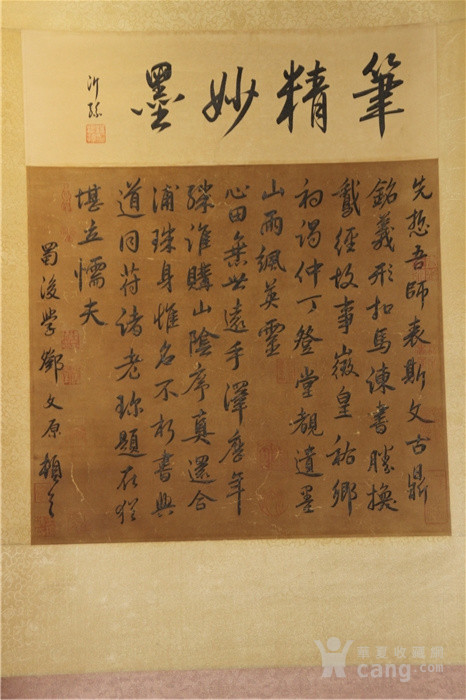 筆精妙墨
沂孫
先悊吾師表斯文古鼎
銘義形扣馬諫書勝換
鵞經故事徵皇祐鄉
祠謁仲丁登堂覩遺墨
山雨颯英靈
心田垂世遠手澤歷年
深誰購山陰序真還合
浦珠身惟名不朽書與
道同符諸老珎題在猶
堪立懦夫
蜀後學鄧文原頓首
華夏收藏網
cang.com